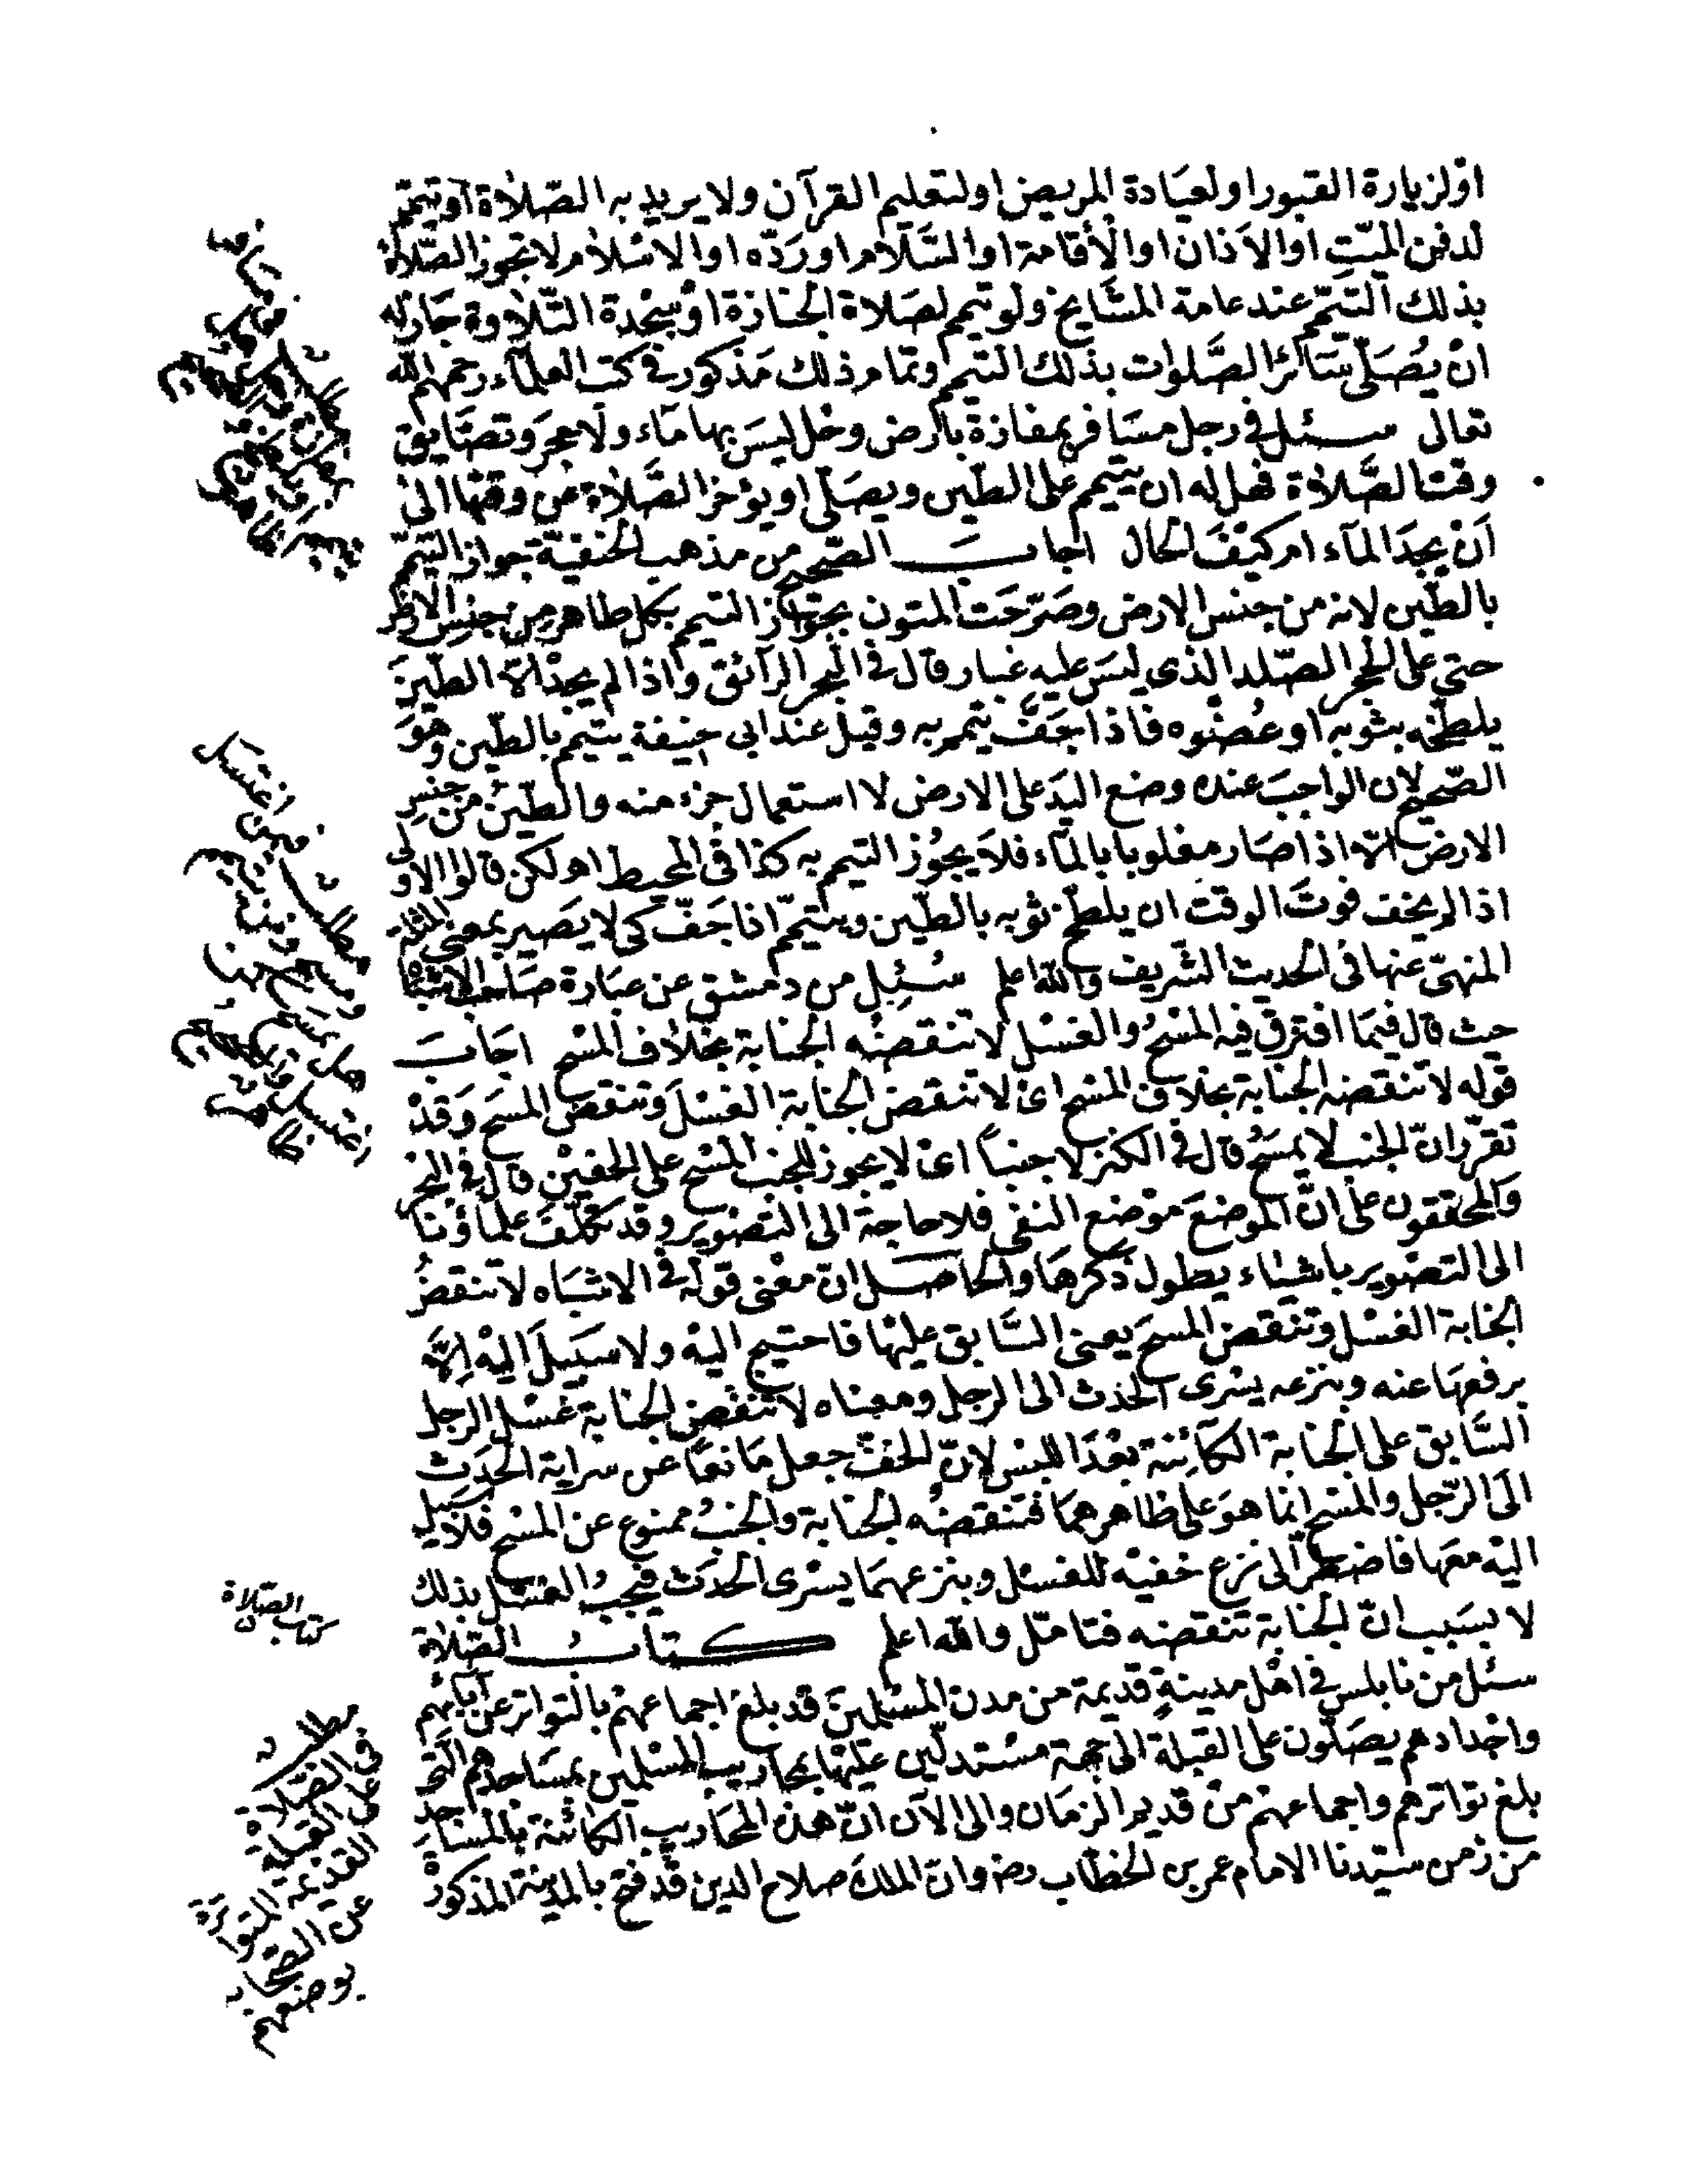 اولزيارة القبور او لعيادة المريض او لتعليم القرآن ولا يريد به الصّلاة او تيمم
لدفن الميّت او الاذان او الأقامة او السَّلام او رَدّه او الاسْلام لا تجوز الصّلاة
بذلك التيمّم عند عامة المشَايخ ولو تيمم لصَلاة الجنازة اوْ سجْدة التّلاوة جَاز له
انْ يُصَلّى سَائر الصَّلوات بذلك التيمم وتمام ذلك مَذكور فى كتب العلمآء رحمهم الله
تعالى سئل فى رجل مسَافر بمفازة بأرض وحل ليسَ بها مَآء ولا حجر وتضَايق
وقت الصَّلاة فهل له ان يتيمم على الطّين ويصَلّى او يؤخر الصَّلاة عن وقتها الى
اَنْ يجدَ المآء ام كيْفَ الحال اجابَ الصّحيح من مذهب الحنفيّة جواز التيمّم
بالطّين لانه من جنس الارض وصَرّحَت المتون بجَواز التيمم بكل طاهر من جنس الارض
حتى على الحجر الصّلد الذى ليسَ عليه غبار قال فى البحر الرّائق واذا لم يجدْ الّا الطّينَ
يلطخه بثوبه او عُضْوه فاذا جَفّ يتيمم به وقيل عند ابى حنيفة يتيمم بالطّين وهوَ
الصّحيح لان الواجبَ عنده وضع اليَد على الارض لا استعمال جزء منه والطّينُ من جنسِ
الارض الّا اذا صَار مغلوبا بالمآء فلَا يجُوز التيمم به كذا فى المحيط اهـ لكن قالوا الاولى
اذا لم يخف فوتَ الوقت ان يلطخ ثوبه بالطّين ويتيمّم اذا جَفّ كى لا يَصير بمعنى المثلة
المنهىّ عنها فى الحديث الشّريف والله اعلم سُئِل من دمشق عن عبَارة صَاحب الاشبَا
حيث قال فيمَا افترق فيه المسْحُ والغسْل لا تنقضُه الجنابة بخلاف المسْح اجَابَ
قوله لا تنقضه الجنابة بخلاف المسْح اىْ لا تنقض الجنابة الغسْلَ وتنقض المسحَ وَقدْ
تقرّر انّ الجنب لا يمسَحُ قال فى الكنز لا جنباً اىْ لا يجوز للجنب المسْح على الخفيْن قال فى البحر
وَالمحققون على انَّ الموضعَ موْضع النفى فلا حاجة الى التصْوير وقد تكلّفَ علمَاؤنا
الى التصْوير باشيَاء يطول ذكرهَا والحَاصل انّ معْنى قوله فى الاشبَاه لا تنقضُ
الجنابة الغسْل وتنقض المسحَ يعنى السَّابق عليْها فاحتيج اليْه ولا سَبيلَ اليْه إلّا
برفعهَا عنه وبنزعه يسْرى الحَدث الى الرجل ومعناه لا تنقض الجنابة غسْل الرجل
السَّابق على الجنابة الكآئِنة بعْدَ اللبس لانّ الخفّ جعل مَانعًا عن سراية الحَدَث
الَى الرّجل والمسْح انما هوَ على ظاهرهمَا فتنقضُه الجنابة والجنبُ ممنوع عن المسْح فلا سَبيل
اليْه معَها فاضطرّ الى نزع خفيْه للغسْل وبنزعهمَا يسْرى الحَدَث فيجبُ الغسْل بذلك
لا بسَبب انّ الجنابة تنقضه فتامّل والله اعلم كتابُ الصّلاة
سئل من نابلس فى اهْل مدينةٍ قديمة من مدن المسْلمينَ قد بلغ اجماعهمْ بالتواتر عن آبآئهم
واجْدادهم يصَلّون على القبلة الى جهة مسْتدلّين عليْها بمحاريب المسْلمين بمسَاجدهم الّتى
بلغ تواترهم واجماعهمْ منْ قديم الزمَان والى الآن انّ هذه المحَاريب الكائنة بالمسَاجد
من زمن سيّدنا الامام عمر بن الخطّاب رضه وانّ الملكَ صلاح الدين قدْ فتح بالمدينة المذكورة
كتاب الصّلاة
مطلب
فى الصّلاة
على القبلة
القديمة المتواترة
عن الصّحابة
بوضعهم